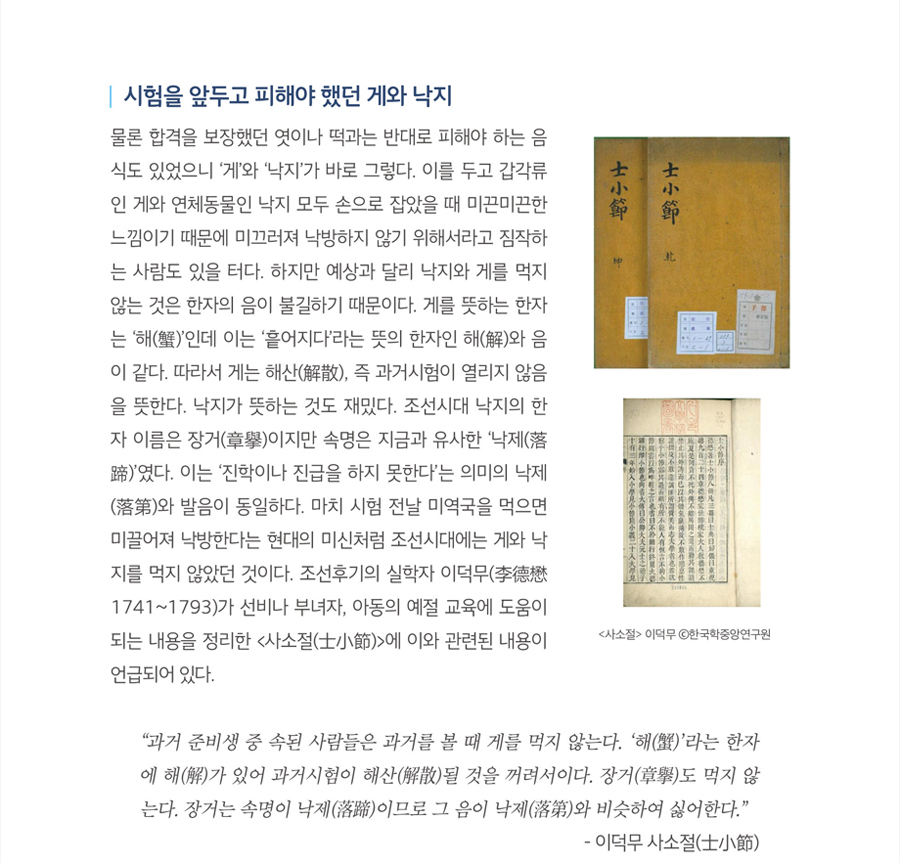 시험을 앞두고 피해야 했던 게와 낙지
물론 합격을 보장했던 엿이나 떡과는 반대로 피해야 하는 음
식도 있었으니 ‘게’와 ‘낙지’가 바로 그렇다. 이를 두고 갑각류
인 게와 연체동물인 낙지 모두 손으로 잡았을 때 미끈미끈한
느낌이기 때문에 미끄러져 낙방하지 않기 위해서라고 짐작하
는 사람도 있을 터다. 하지만 예상과 달리 낙지와 게를 먹지
않는 것은 한자의 음이 불길하기 때문이다. 게를 뜻하는 한자
는 ‘해(蟹)’인데 이는 ‘흩어지다’라는 뜻의 한자인 해(解)와 음
이 같다. 따라서 게는 해산(解散), 즉 과거시험이 열리지 않음
을 뜻한다. 낙지가 뜻하는 것도 재밌다. 조선시대 낙지의 한
자 이름은 장거(章擧)이지만 속명은 지금과 유사한 ‘낙제(落
蹄)’였다. 이는 ‘진학이나 진급을 하지 못한다’는 의미의 낙제
(落第)와 발음이 동일하다. 마치 시험 전날 미역국을 먹으면
미끌어져 낙방한다는 현대의 미신처럼 조선시대에는 게와 낙
지를 먹지 않았던 것이다. 조선후기의 실학자 이덕무(李德懋
1741~1793)가 선비나 부녀자, 아동의 예절 교육에 도움이
되는 내용을 정리한 <사소절(士小節)>에 이와 관련된 내용이
언급되어 있다.
士小節
士小節
乾
士小節序
<사소절> 이덕무 ©한국학중앙연구원
“과거 준비생 중 속된 사람들은 과거를 볼 때 게를 먹지 않는다. ‘해(蟹)’라는 한자
에 해(解)가 있어 과거시험이 해산(解散)될 것을 꺼려서이다. 장거(章擧)도 먹지 않
는다. 장거는 속명이 낙제(落蹄)이므로 그 음이 낙제(落第)와 비슷하여 싫어한다.”
- 이덕무 사소절(士小節)